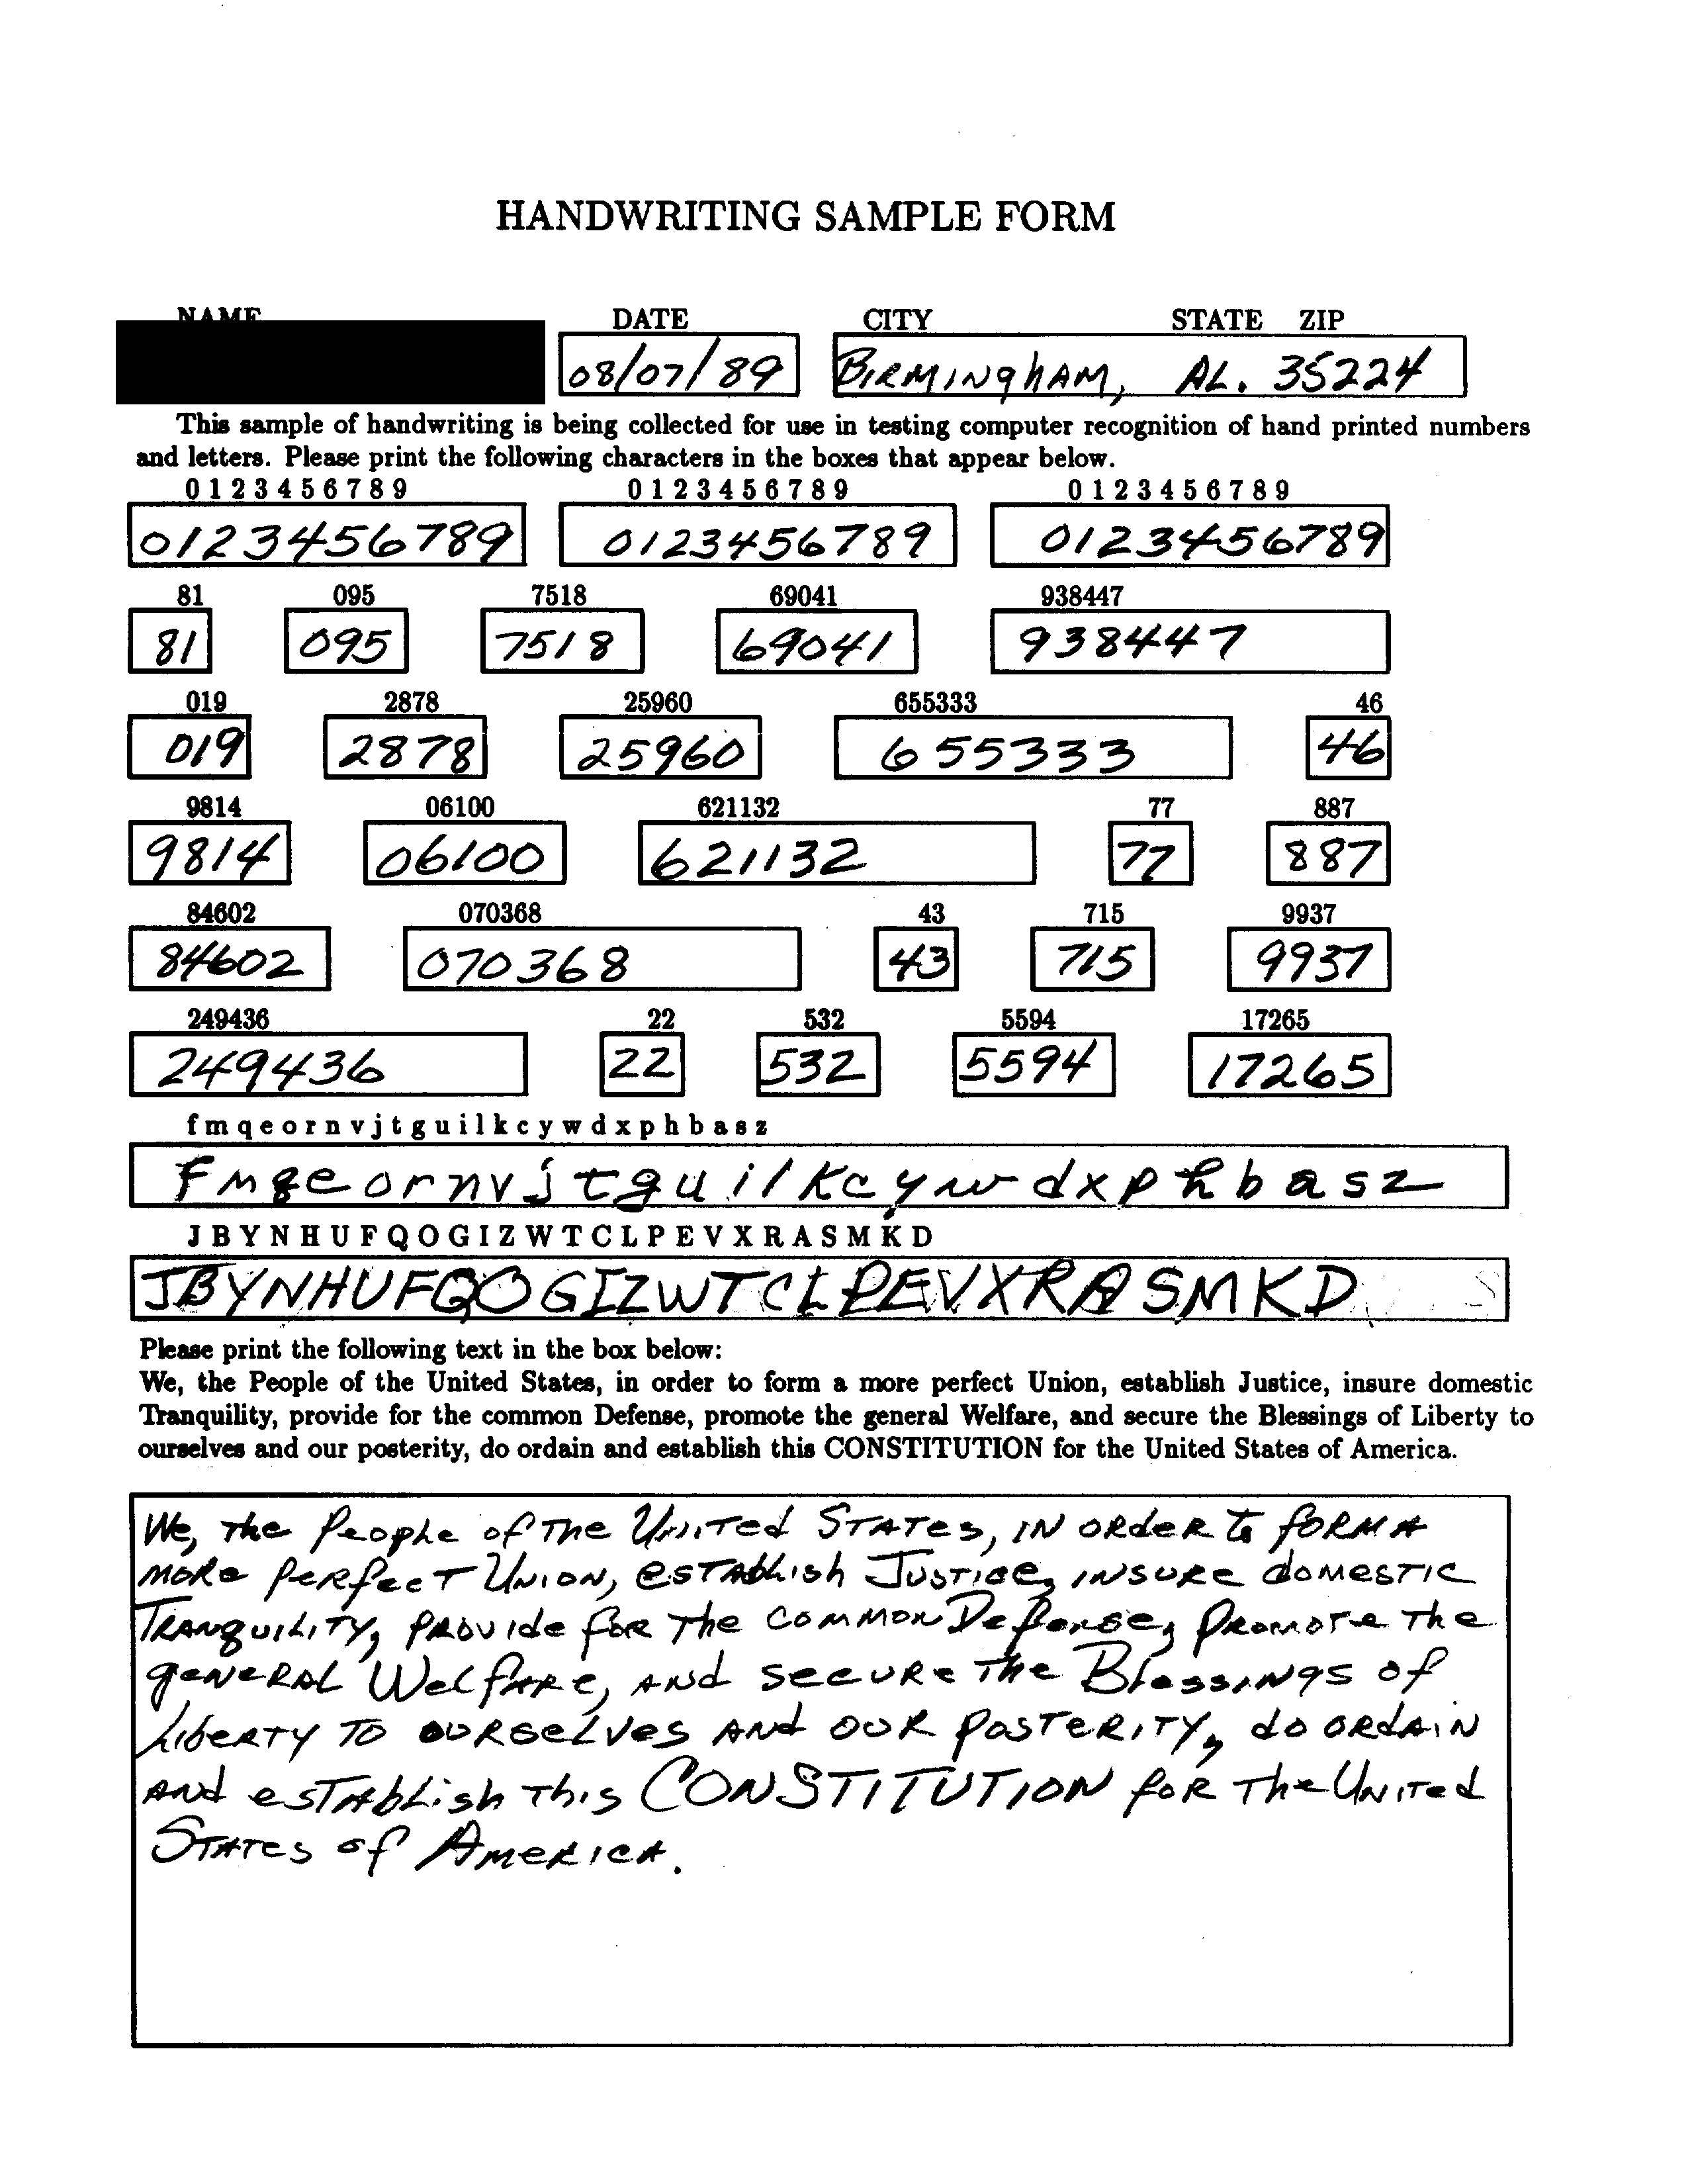 HANDWRITING SAMPLE FORM
NAME DATE CITY STATE ZIP
08/07/89 BIRMINghAM, AL. 35224
This sample of handwriting is being collected for use in testing computer recognition of hand printed numbers
and letters. Please print the following characters in the boxes that appear below.
0 1 2 3 4 5 6 7 8 9 0 1 2 3 4 5 6 7 8 9 0 1 2 3 4 5 6 7 8 9
0123456789 0123456789 0123456789
81 095 7518 69041 938447
81 095 7518 69041 938447
019 2878 25960 655333 46
019 2878 25960 655333 46
9814 06100 621132 77 887
9814 06100 621132 77 887
84602 070368 43 715 9937
84602 070368 43 715 9937
249436 22 532 5594 17265
249436 22 532 5594 17265
f m q e o r n v j t g u i l k c y w d x p h b a s z
f m q e o r n v j t g u i l k c y w d x p h b a s z
J B Y N H U F Q O G I Z W T C L P E V X R A S M K D
J B Y N H U F Q O G I Z W T C L P E V X R A S M K D
Please print the following text in the box below:
We, the People of the United States, in order to form a more perfect Union, establish Justice, insure domestic
Tranquility, provide for the common Defense, promote the general Welfare, and secure the Blessings of Liberty to
ourselves and our posterity, do ordain and establish this CONSTITUTION for the United States of America.
We, The People of The United States, in order to form a
more perfect Union, establish Justice, insure domestic
Tranquility, provide for The common Defense, Promote The
general Welfare, and secure The Blessings of
Liberty To ourselves and our posterity, do ordain
and establish This CONSTITUTION for The United
States of America.